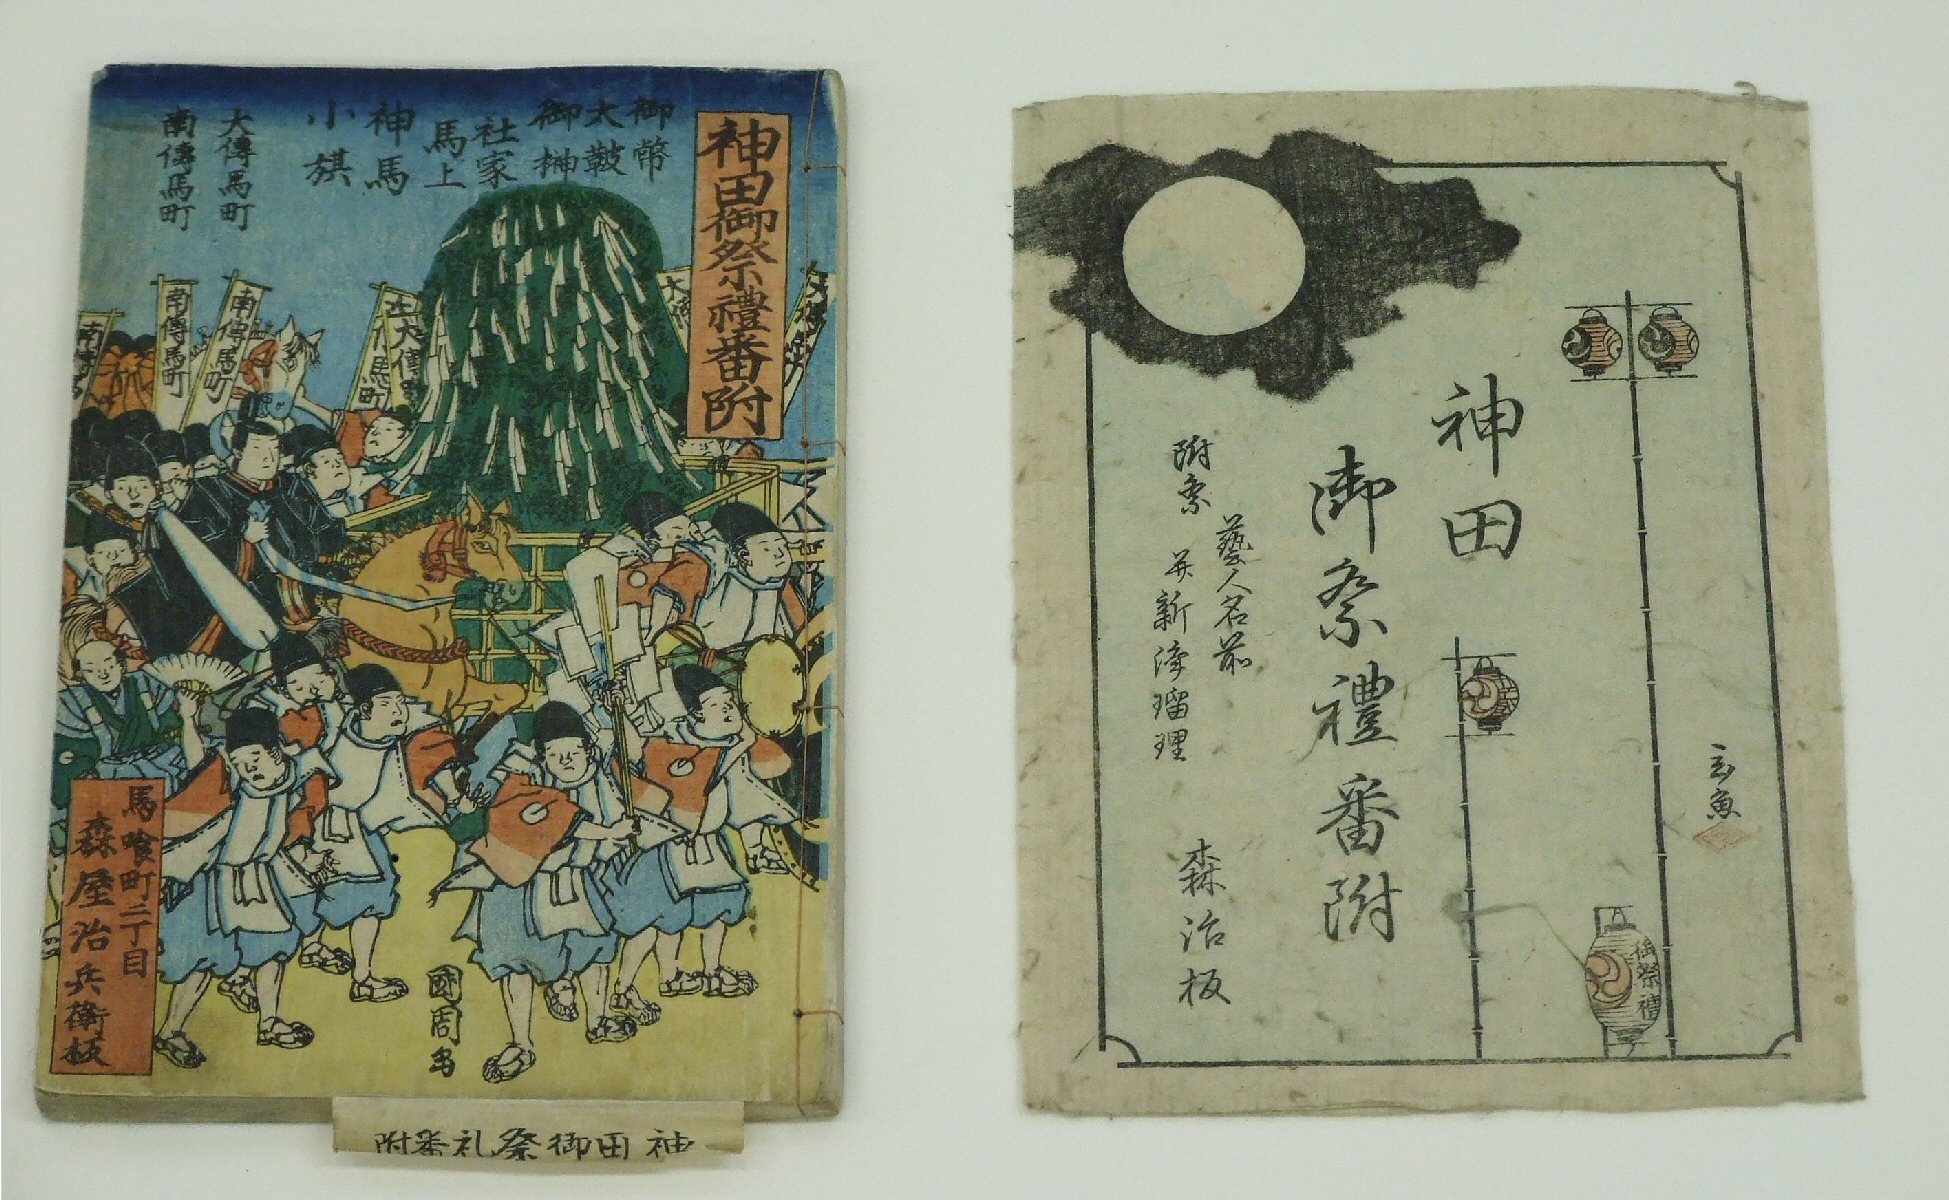 神田御祭禮番附
御幣
太皷
御榊
社家
馬上
神馬
小旗
大傳馬町
南傳馬町
南傳馬町
南傳馬町
大傳馬町
馬喰町二丁目
森屋治兵衛板
國周画
附番礼祭御田神
神田
御祭禮番附
藝人名前
附祭
并新浄瑠理
森治板
玄魚
御祭禮